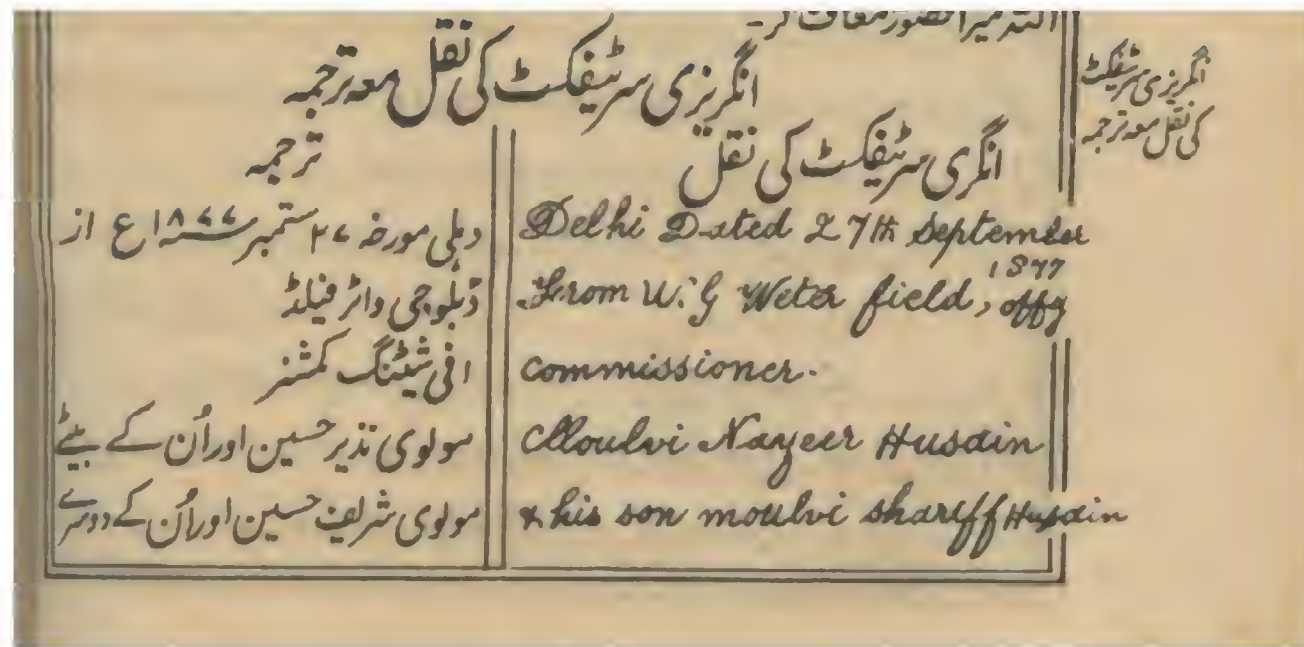 اللہ میرا قصور معاف کر۔
انگریزی سرٹیفکٹ کی نقل معہ ترجمہ
انگریزی سرٹیفکٹ
کی نقل معہ ترجمہ
انگری سرٹیفکٹ کی نقل
Delhi Dated 27th September
1877
From W. G Weter field, offg
commissioner.
Moulvi Nazeer Husain
& his son moulvi shariff Husain
ترجمہ
دہلی مورخہ ۲۷ ستمبر ۱۸۷۷ ع از
ڈبلوجی واٹر فیلڈ
افی شیٹنگ کمشنر
مولوی نذیر حسین اور اُن کے بیٹے
مولوی شریف حسین اور اُن کے دوسرے